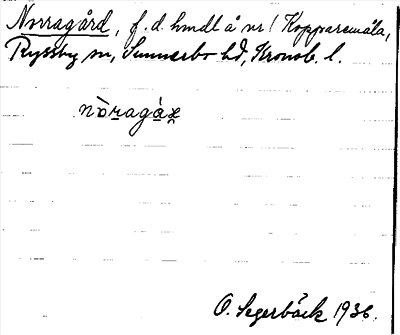 Norragård, f. d. hmdl å nr 1 Kopparemåla,
Ryssby sn, Sunnerbo hd, Kronob. l.
nòragàṛ
O. Segerbäck 1936.